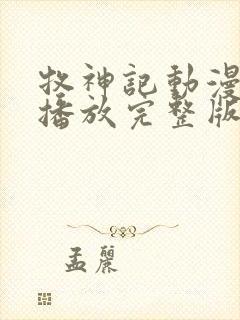 牧神記動漫
播放完整版
孟麗